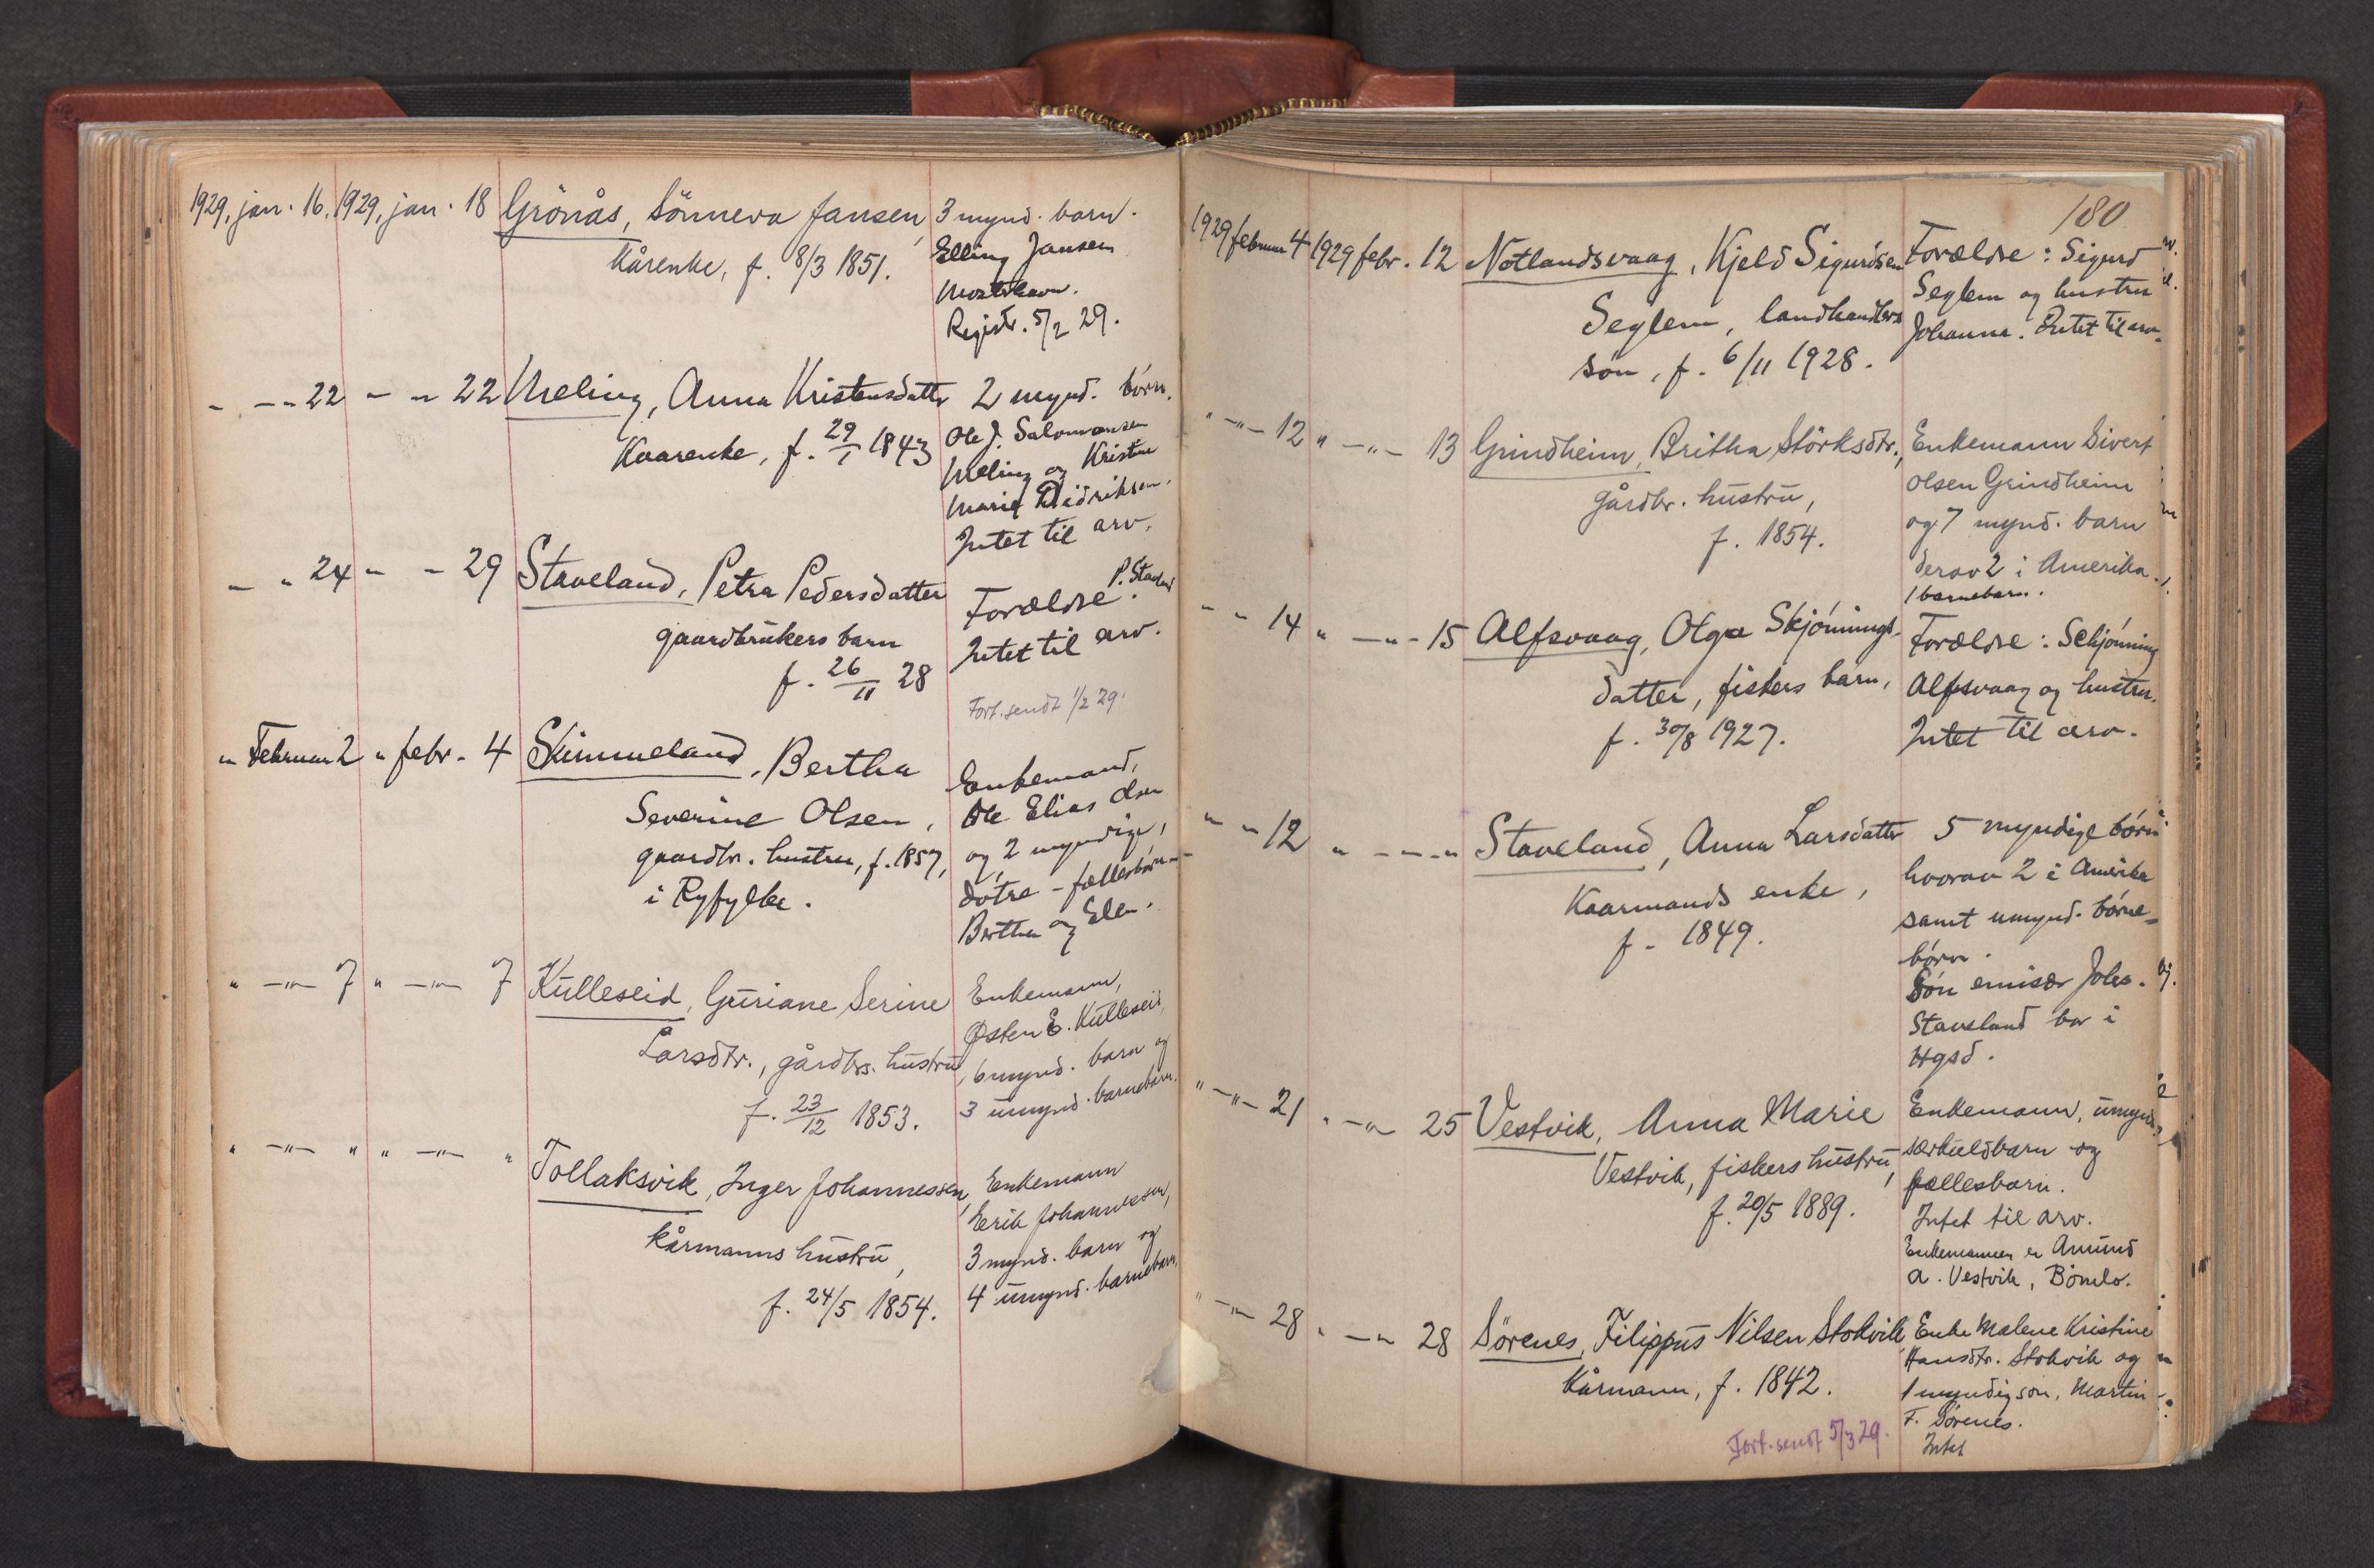 1929, jan. 16. 1929, jan. 18 Grönås, Sönneva Jansen, 3 mynd. barn.
kårenke, f. 8/3 1851. Elling Jansen
Mosterhavn.
Registr. 5/2 29.
" - " 22 - " 22 Meling, Anna Kristensdatter 2 mynd. börn.
Kaarenke, f. 29/1 1843 Ole J. Salomonsen
Meling og Kristine
Marie Didriksen.
Intet til arv.
- " 24 " - 29 Staveland, Petra Pedersdatter Forældre: P. Stavland
gaardbrukers barn Intet til arv.
f. 26/11 28
Fort. sendt 1/2 29.
" Februar 2 " febr. 4 Skimmeland, Bertha Enkemand,
Severine Olsen, Ole Elias Olsen
gaardbr. hustru, f. 1857, og 2 myndige,
i Ryfylke. dötre - fællesbörn -
Bertha og Elen.
" -"- 7 " -"- 7 Kulleseid, Guriane Serine Enkemann,
Larsdtr., gårdbrs. hustru Østen E. Kulleseid,
f. 23/12 1853. 6 mynd. barn og
3 umynd. barnebarn.
" -"- " " -"- " Tollaksvik, Inger Johannessen, Enkemann
kårmanns hustru, Erik Johannessen,
f. 24/5 1854. 3 mynd. barn og
4 umynd. barnebarn.
180
1929 februar 4 1929 febr. 12 Notlandsvaag, Kjeld Sigurdsen Forældre: Sigurd
Seglem, landhandlers Seglem og hustru
sön, f. 6/11 1928. Johanne. Intet til arv.
" -"- 12 " -"- 13 Grindheim, Britha Störksdtr., Enkemann Sivert
gårdbr. hustru, Olsen Grindheim
f. 1854. og 7 mynd. barn
derav 2 i Amerika.
1 barnebarn.
- " 14 " -"- 15 Alfsvaag, Olga Skjönnings- Forældre: Schjönning
datter, fiskers barn, Alfsvaag og hustru.
f. 30/8 1927. Intet til arv.
" " 12 " -"- " Staveland, Anna Larsdatter 5 myndige börn
Kaarmands enke, hvorav 2 i Amerika
f. 1849. samt umynd. börne-
börn.
Sön emisær Johs.
Staveland bor i
Hgsd.
" -"- 21 " -"- 25 Vestvik, Anna Marie Enkemann, umynd.
Vestvik, fiskers hustru, særkuldbarn og
f. 20/5 1889. fællesbarn.
Intet til arv.
Enkemannen er Amund
A. Vestvik, Bömlo.
" -"- 28 " -"- 28 Sörenes, Filippus Nilsen Stokvik, Enke Malene Kristine
kårmann, f. 1842. Hansdtr. Stokvik og
1 myndig sön, Martin
F. Sörenes.
Fort. sendt 5/3 29. Intet